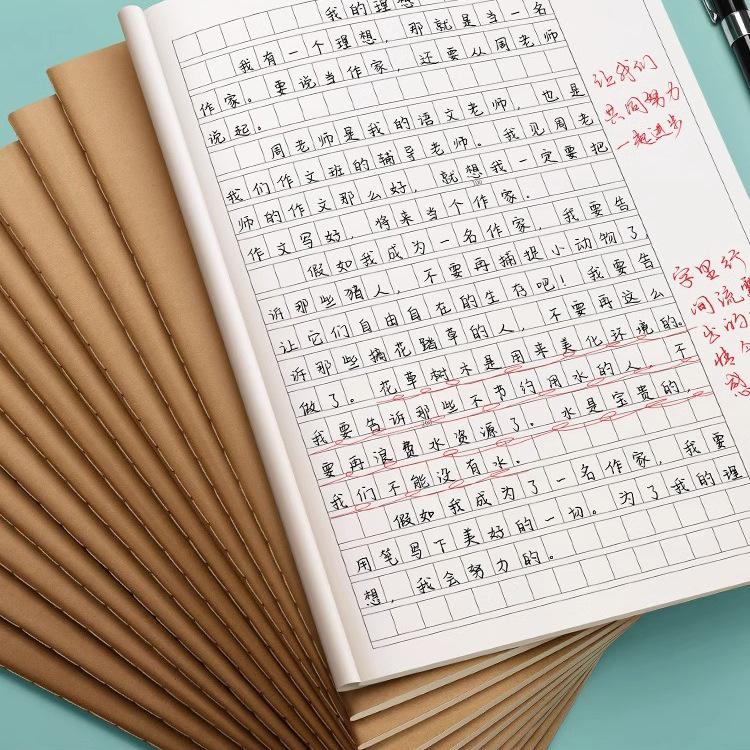 我的理想
我有一个理想，那就是当一名
作家。要说当作家，还要从周老师
说起。
周老师是我的语文老师，也是
我们作文班的辅导老师。我见周老
师的作文那么好，就想我一定要把
作文写好，将来当个作家。
假如我成为一名作家，我要告
诉那些猎人，不要再捕捉小动物了
让它们自由自在的生存吧！我要告
诉那些摘花踏草的人，不要再这么
做了。花草树木是用来美化环境的。
我要告诉那些不节约用水的人，不
要再浪费水资源了。水是宝贵的，
我们不能没有水。
假如我成为了一名作家，我要
用笔写下美好的一切。为了我的理
想，我会努力的。
让我们
共同努力
一起进步
字里行
间流露
出的
情
感